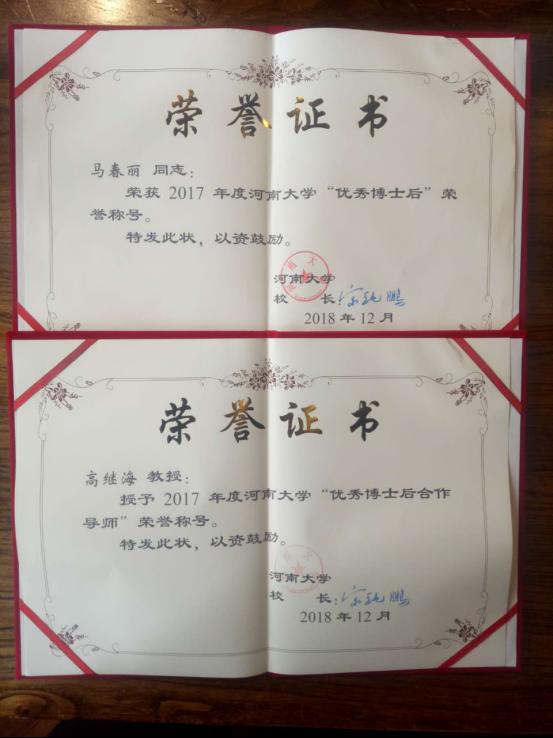 荣誉证书
马春丽 同志：
荣获 2017 年度河南大学“优秀博士后”荣
誉称号。
特发此状，以资鼓励。
河南大学
校 长：宋纯鹏
2018 年 12 月
荣誉证书
高继海 教授：
授予 2017 年度河南大学“优秀博士后合作
导师”荣誉称号。
特发此状，以资鼓励。
河南大学
校 长：宋纯鹏
2018 年 12 月